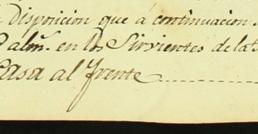 Disposicion que á continuacion
alm.ͤ en los Sirvientes de la
Casa al frente